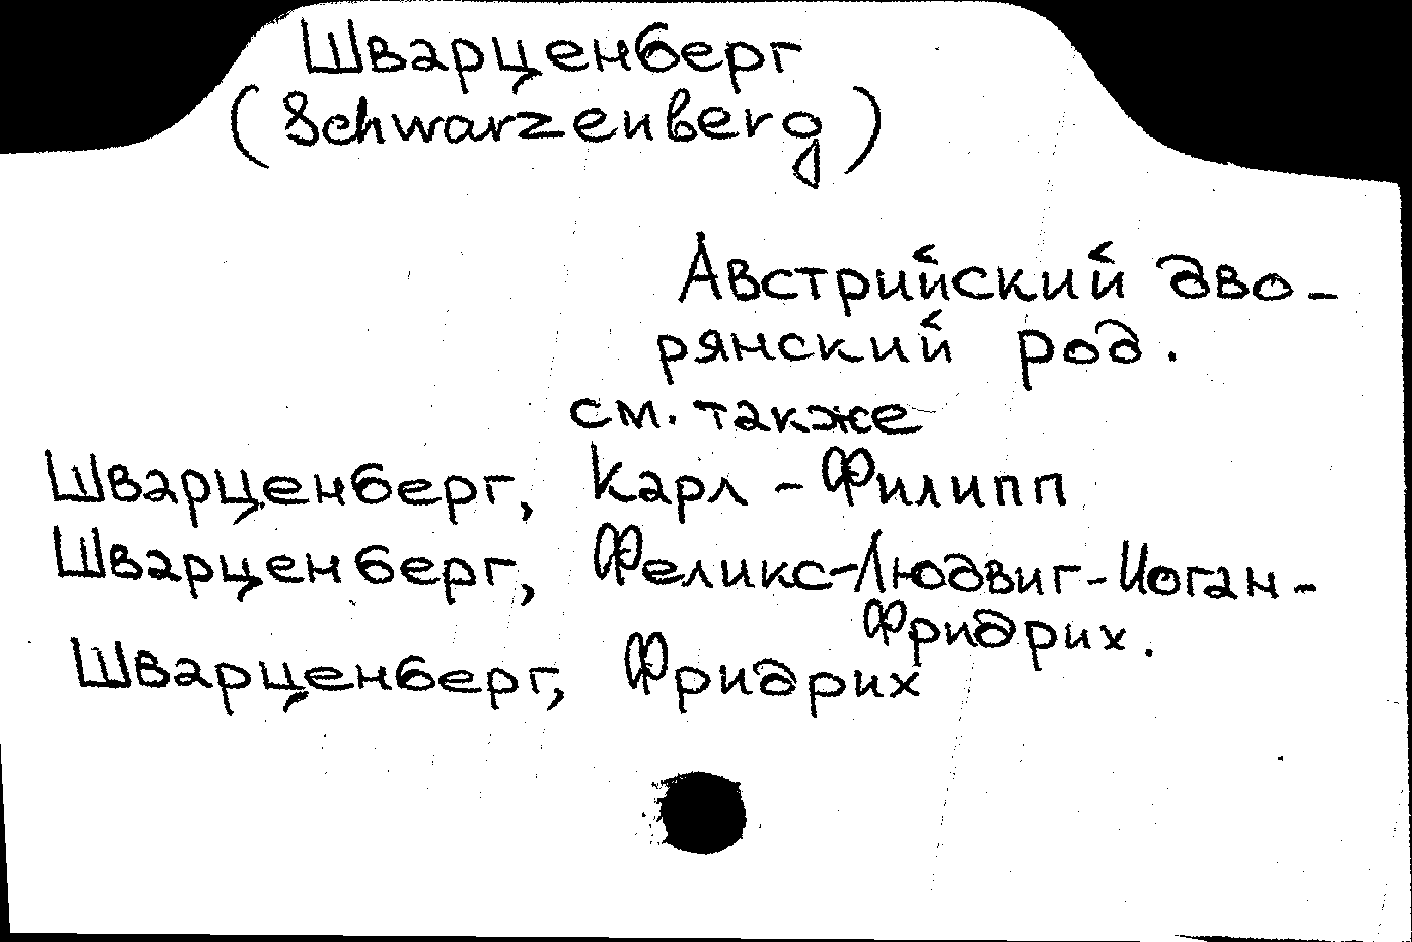 Шварценберг
(Schwarzenberg)
Австрийский дво-
рянский род.
см. также
Шварценберг, Карл-Филипп
Шварценберг, Феликс-Людвиг-Иоган-
Фридрих.
Шварценберг, Фридрих